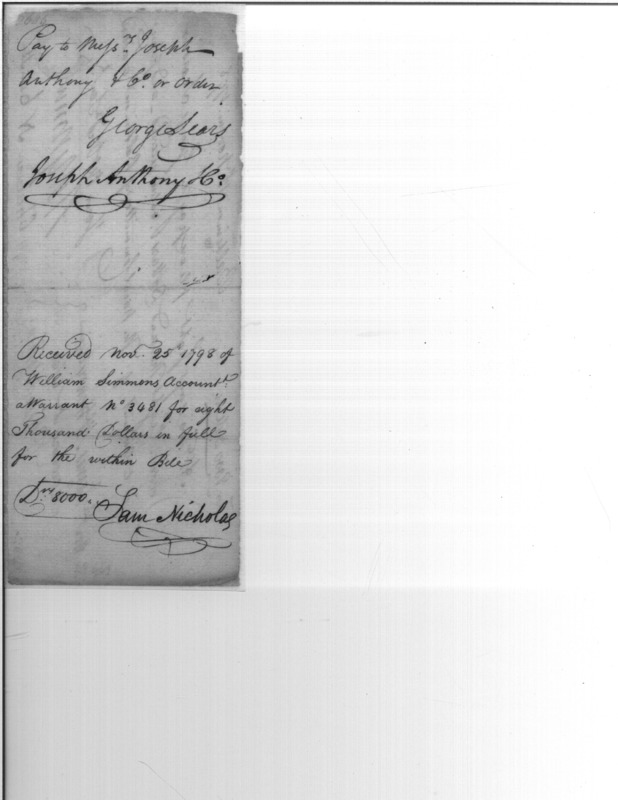 Pay to Mess.rs Joseph
Anthony & Co. or order
George Sears
Joseph Anthony & Co.
Received Nov. 25 1798 of
William Simmons Accountt
a Warrant No 3481 for eight
Thousand Dollars in full
for the within Bile
Drs 8000.
Sam Nicholas